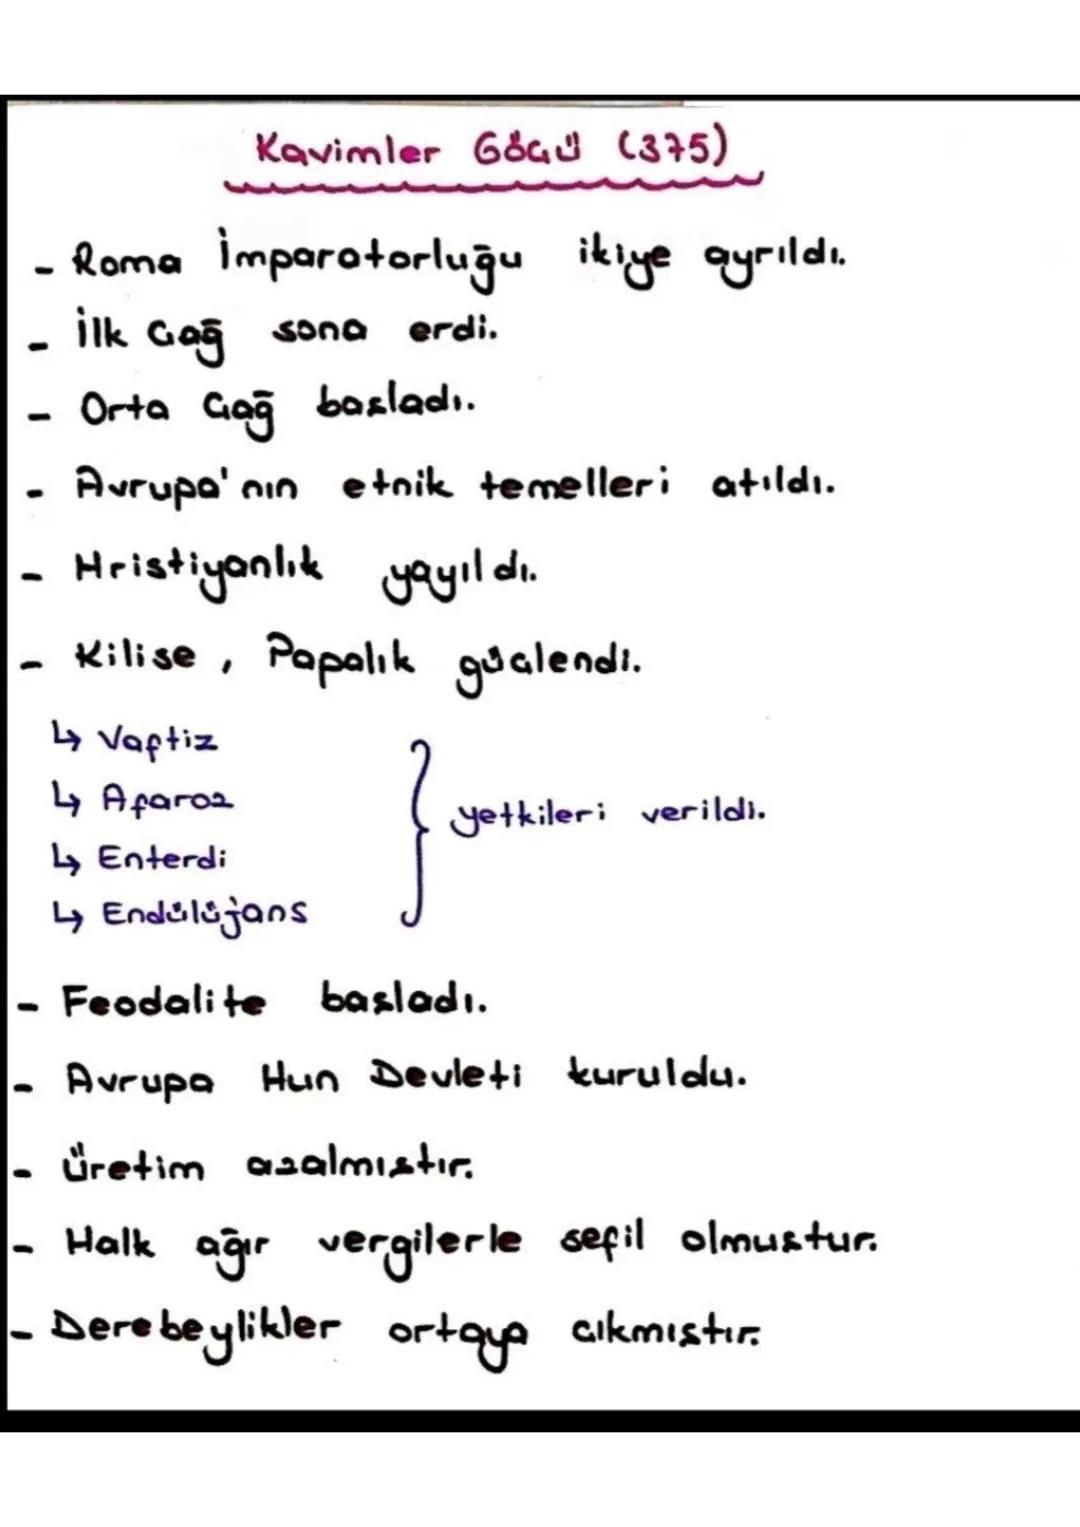 Kavimler Göçü (375)
- Roma İmparatorluğu ikiye ayrıldı.
- İlk Çağ sona erdi.
- Orta Çağ başladı.
- Avrupa'nın etnik temelleri atıldı.
- Hristiyanlık yayıldı.
- Kilise, Papalık güçlendi.
↳ Vaftiz
↳ Aforoz
↳ Enterdi
↳ Endülüjans
} yetkileri verildi.
- Feodalite başladı.
- Avrupa Hun Devleti kuruldu.
- Üretim azalmıştır.
- Halk ağır vergilerle sefil olmuştur.
- Derebeylikler ortaya çıkmıştır.